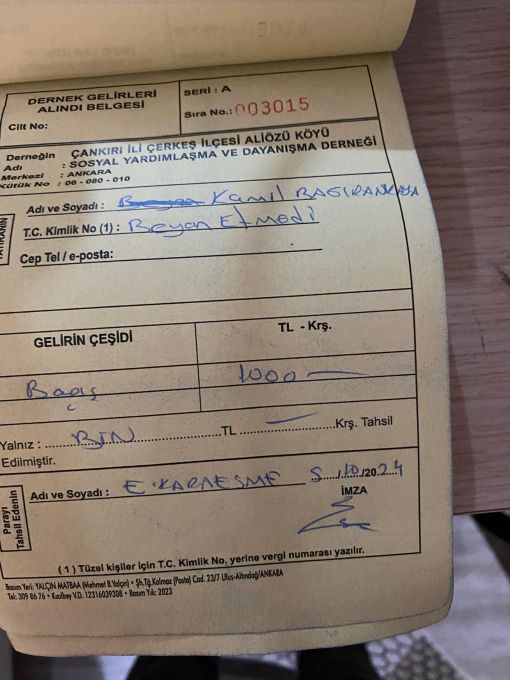 DERNEK GELİRLERİ
ALINDI BELGESİ
Cilt No:
SERİ : A
Sıra No.: 003015
Derneğin ÇANKIRI İLİ ÇERKEŞ İLÇESİ ALİÖZÜ KÖYÜ
Adı : SOSYAL YARDIMLAŞMA VE DAYANIŞMA DERNEĞİ
Merkezi : ANKARA
Kütük No : 06 - 080 - 010
Adı ve Soyadı : Kamil BAGIRANKAYA
T.C. Kimlik No (1) : Beyan Etmedi
Cep Tel / e-posta:
GELİRİN ÇEŞİDİ
TL - Krş.
Bağış
1000
Yalnız : BİN TL Krş. Tahsil
Edilmiştir.
Parayı
Tahsil Edenin
Adı ve Soyadı : E. KARAEŞME 5/10/2024
İMZA
(1) Tüzel kişiler için T.C. Kimlik No. yerine vergi numarası yazılır.
Basım Yeri: YALÇIN MATBAA (Mehmet B.Yalçın) • Şh.Tğ.Kalmaz (Posta) Cad. 23/7 Ulus-Altındağ/ANKARA
Tel: 309 86 76 • Kızılbey V.D. 12316039308 • Basım Yılı: 2023